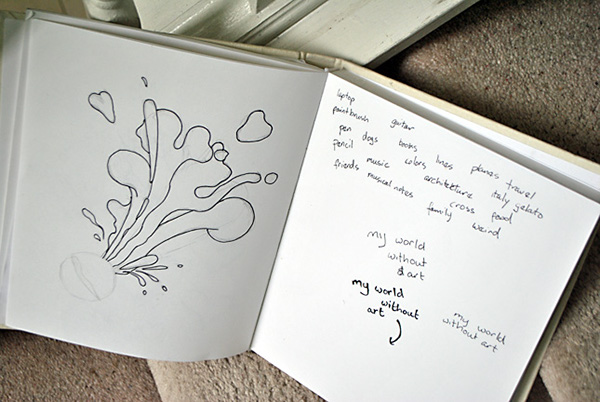 laptop
paintbrush guitar
pen dogs books lines planes travel
pencil music colors architecture italy gelato
friends musical notes cross food
family weird
my world
without
& art
my world
without
art
my world
without art